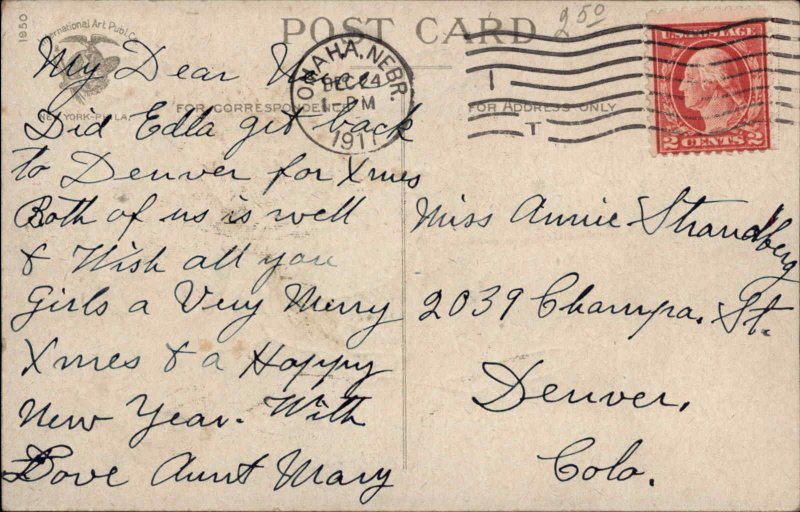 1950
International Art Publ. Co.
NEW YORK-PHILA.
POST CARD
2 50
OMAHA, NEBR.
DEC 24
1-PM
1917
U.S. POSTAGE
2 CENTS 2
FOR CORRESPONDENCE
FOR ADDRESS ONLY
My Dear
Did Edla get back
to Denver for Xmas
Both of us is well
& Wish all you
Girls a Very Merry
Xmes & a Happy
New Year. With
Love Aunt Mary
Miss Annie Strandberg
2039 Champa. St.
Denver,
Colo.